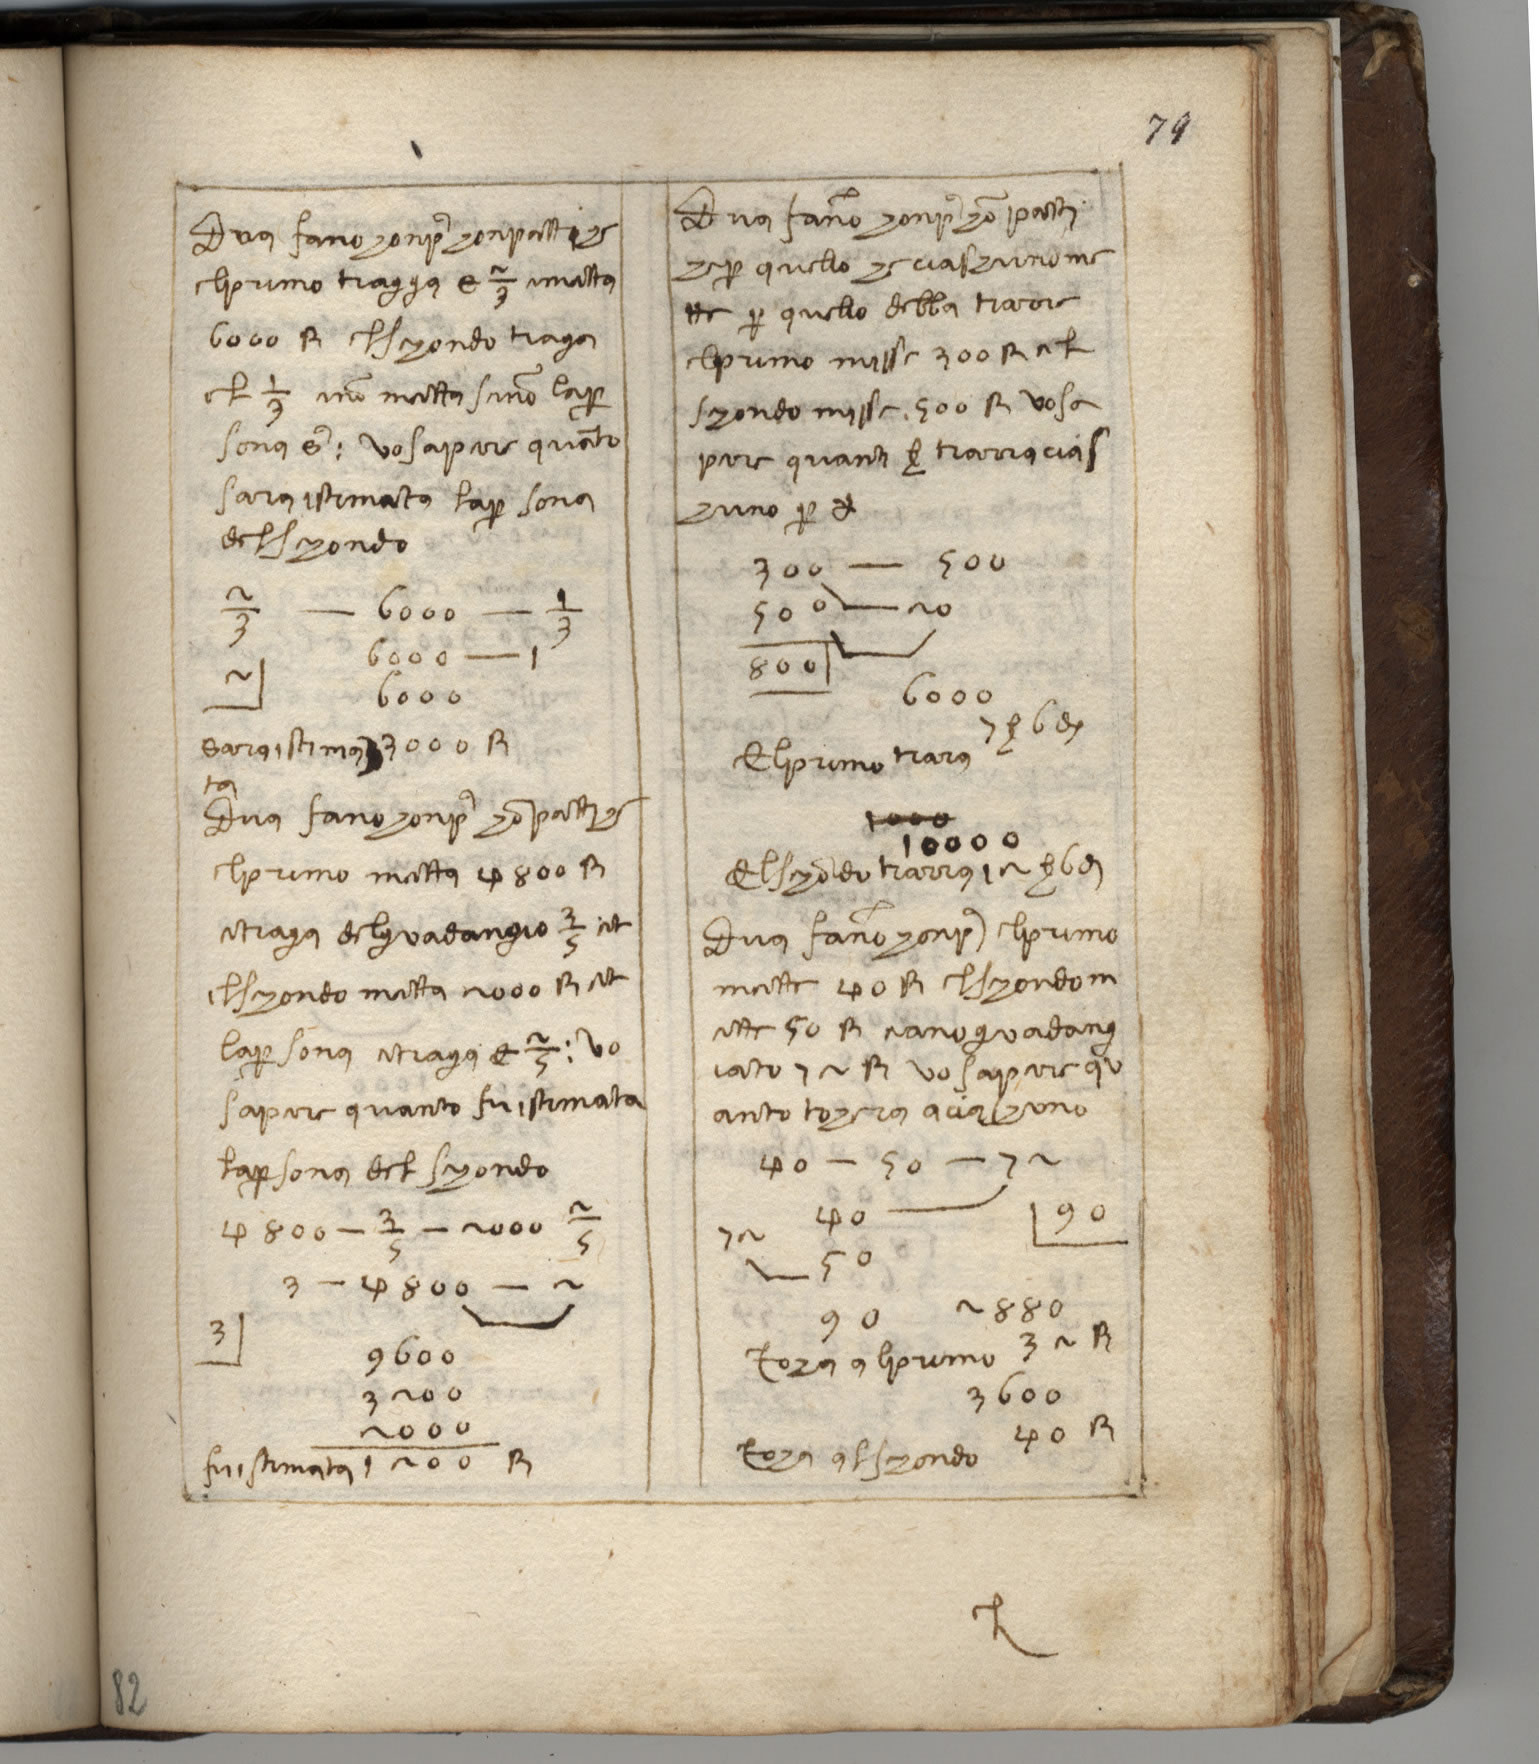 79
Dua fano 9onp̄ 9onpatti 9e
elprimo tragga e 2/3 imetta
6000 R elsegondo traga
el 1/3 inō metta sinō lap̱
sona s̄: vo sapere quāto
sara istimata lap̱ sona
del segondo
2/3 — 6000 — 1/3
6000 — 1
2
6000
sara istima 3000 R
ta
Dua fano 9onp̄ 9ō patti 9e
elprimo metta 4800 R
etraga del guadangio 3/5 et
il segondo metta 2000 R et
lap̱ sona etraga e 2/5: vo
sapere quanto fu istimata
lap̱ sona del segondo
4800 — 3/5 — 2000 2/5
3 — 4800 — 2
3
9600
3200
2000
fu istimata 1200 R
Dua fanō 9onp̄ 9ō patti
9e p̱ quello 9e cias9uno me
tte p̱ quello debba trare
elprimo misse 300 R el
segondo misse 500 R vo sa
pere quanti § trarra cias
9uno p̱
300 — 500
500 — 20
800
6000
7 § 6 d
El primo trara
1000
10000
El segōdo trarra 12 § 6 d
Dua fanō 9onp̄ elprimo
mette 40 R el segondo m
ette 50 R e ano guadang
iato 72 R vo sapere qu
anto to9era a cias9uno
40 — 50 — 72
40
90
72
50
90 2880
to9a al primo 32 R
3600
40 R
to9a al segondo
82